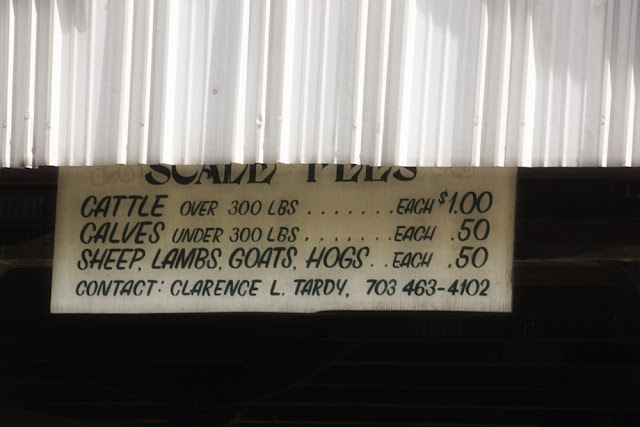 SCALE FEES
CATTLE OVER 300 LBS . . . . . . . EACH $1.00
CALVES UNDER 300 LBS . . . . . . EACH .50
SHEEP, LAMBS, GOATS, HOGS . . EACH .50
CONTACT: CLARENCE L. TARDY, 703 463-4102